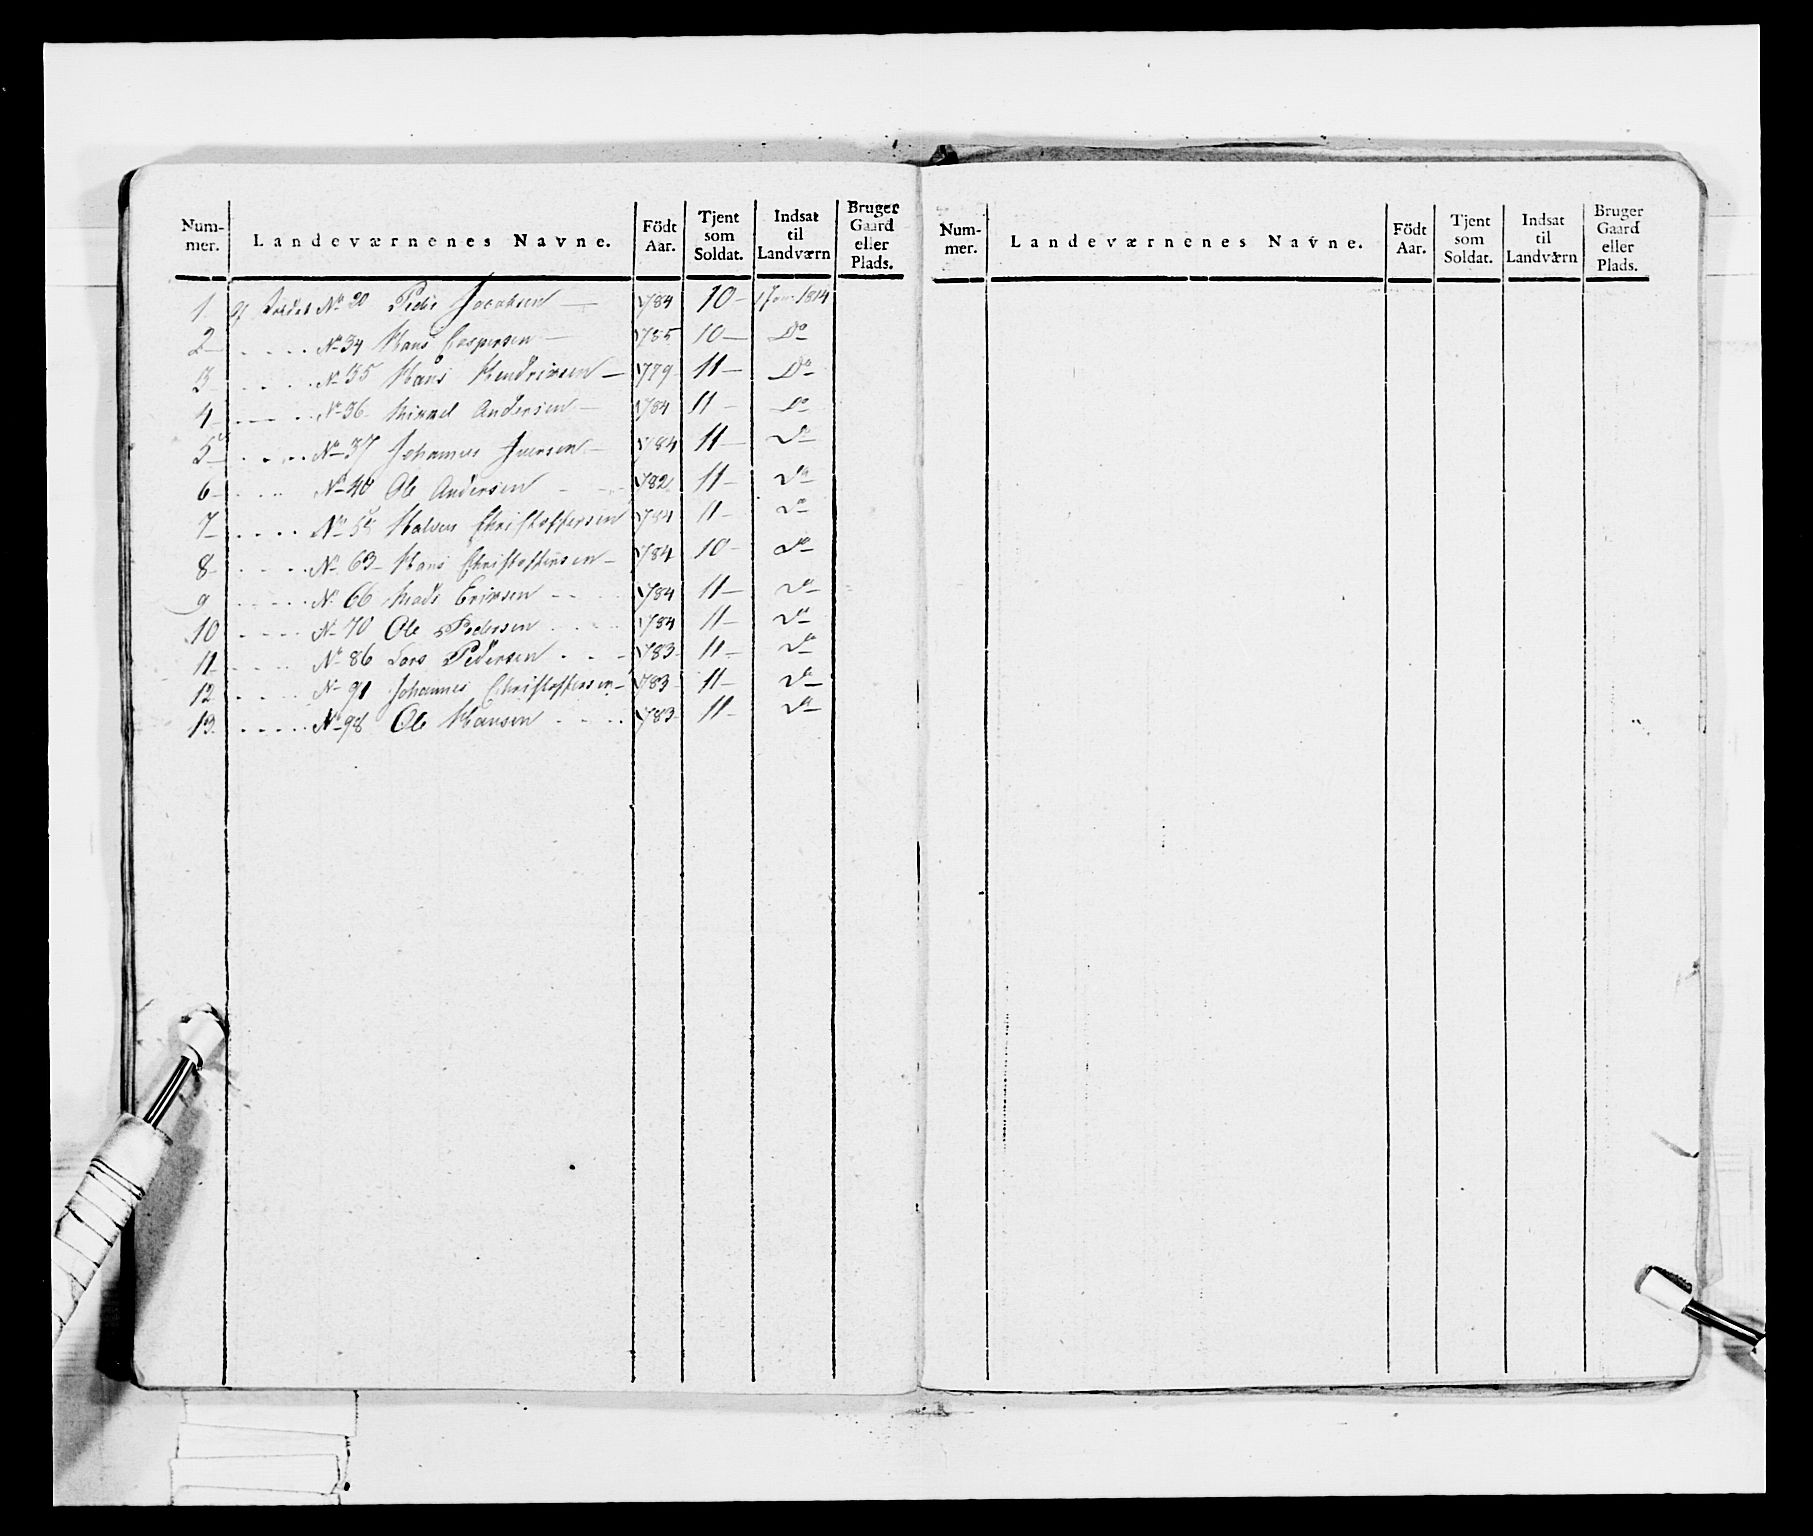 Num-mer. Landeværnenes Navne. Födt Aar. Tjent som Soldat. Indsat til Landværn Bruger Gaard eller Plads.
1 Soldat No 20 Peder Jacobsen 1784 10 1 Jan 1814
2 No 34 Hans Caspersen 1785 10 Do
3 No 35 Hans Hendrixen 1779 11 Do
4 No 36 Mikkel Andersen 1784 11 Do
5 No 37 Johannes Iversen 1784 11 Do
6 No 40 Ole Andersen 1782 11 Do
7 No 55 Halvor Christoffersen 1784 11 Do
8 No 63 Hans Christoffersen 1784 10 Do
9 No 66 Mads Erixsen 1784 11 Do
10 No 70 Ole Pedersen 1784 11 Do
11 No 86 Lars Pedersen 1783 11 Do
12 No 91 Johannes Christoffersen 1783 11 Do
13 No 98 Ole Hansen 1783 11 Do
Num-mer. Landeværnenes Navne. Födt Aar. Tjent som Soldat. Indsat til Landværn Bruger Gaard eller Plads.